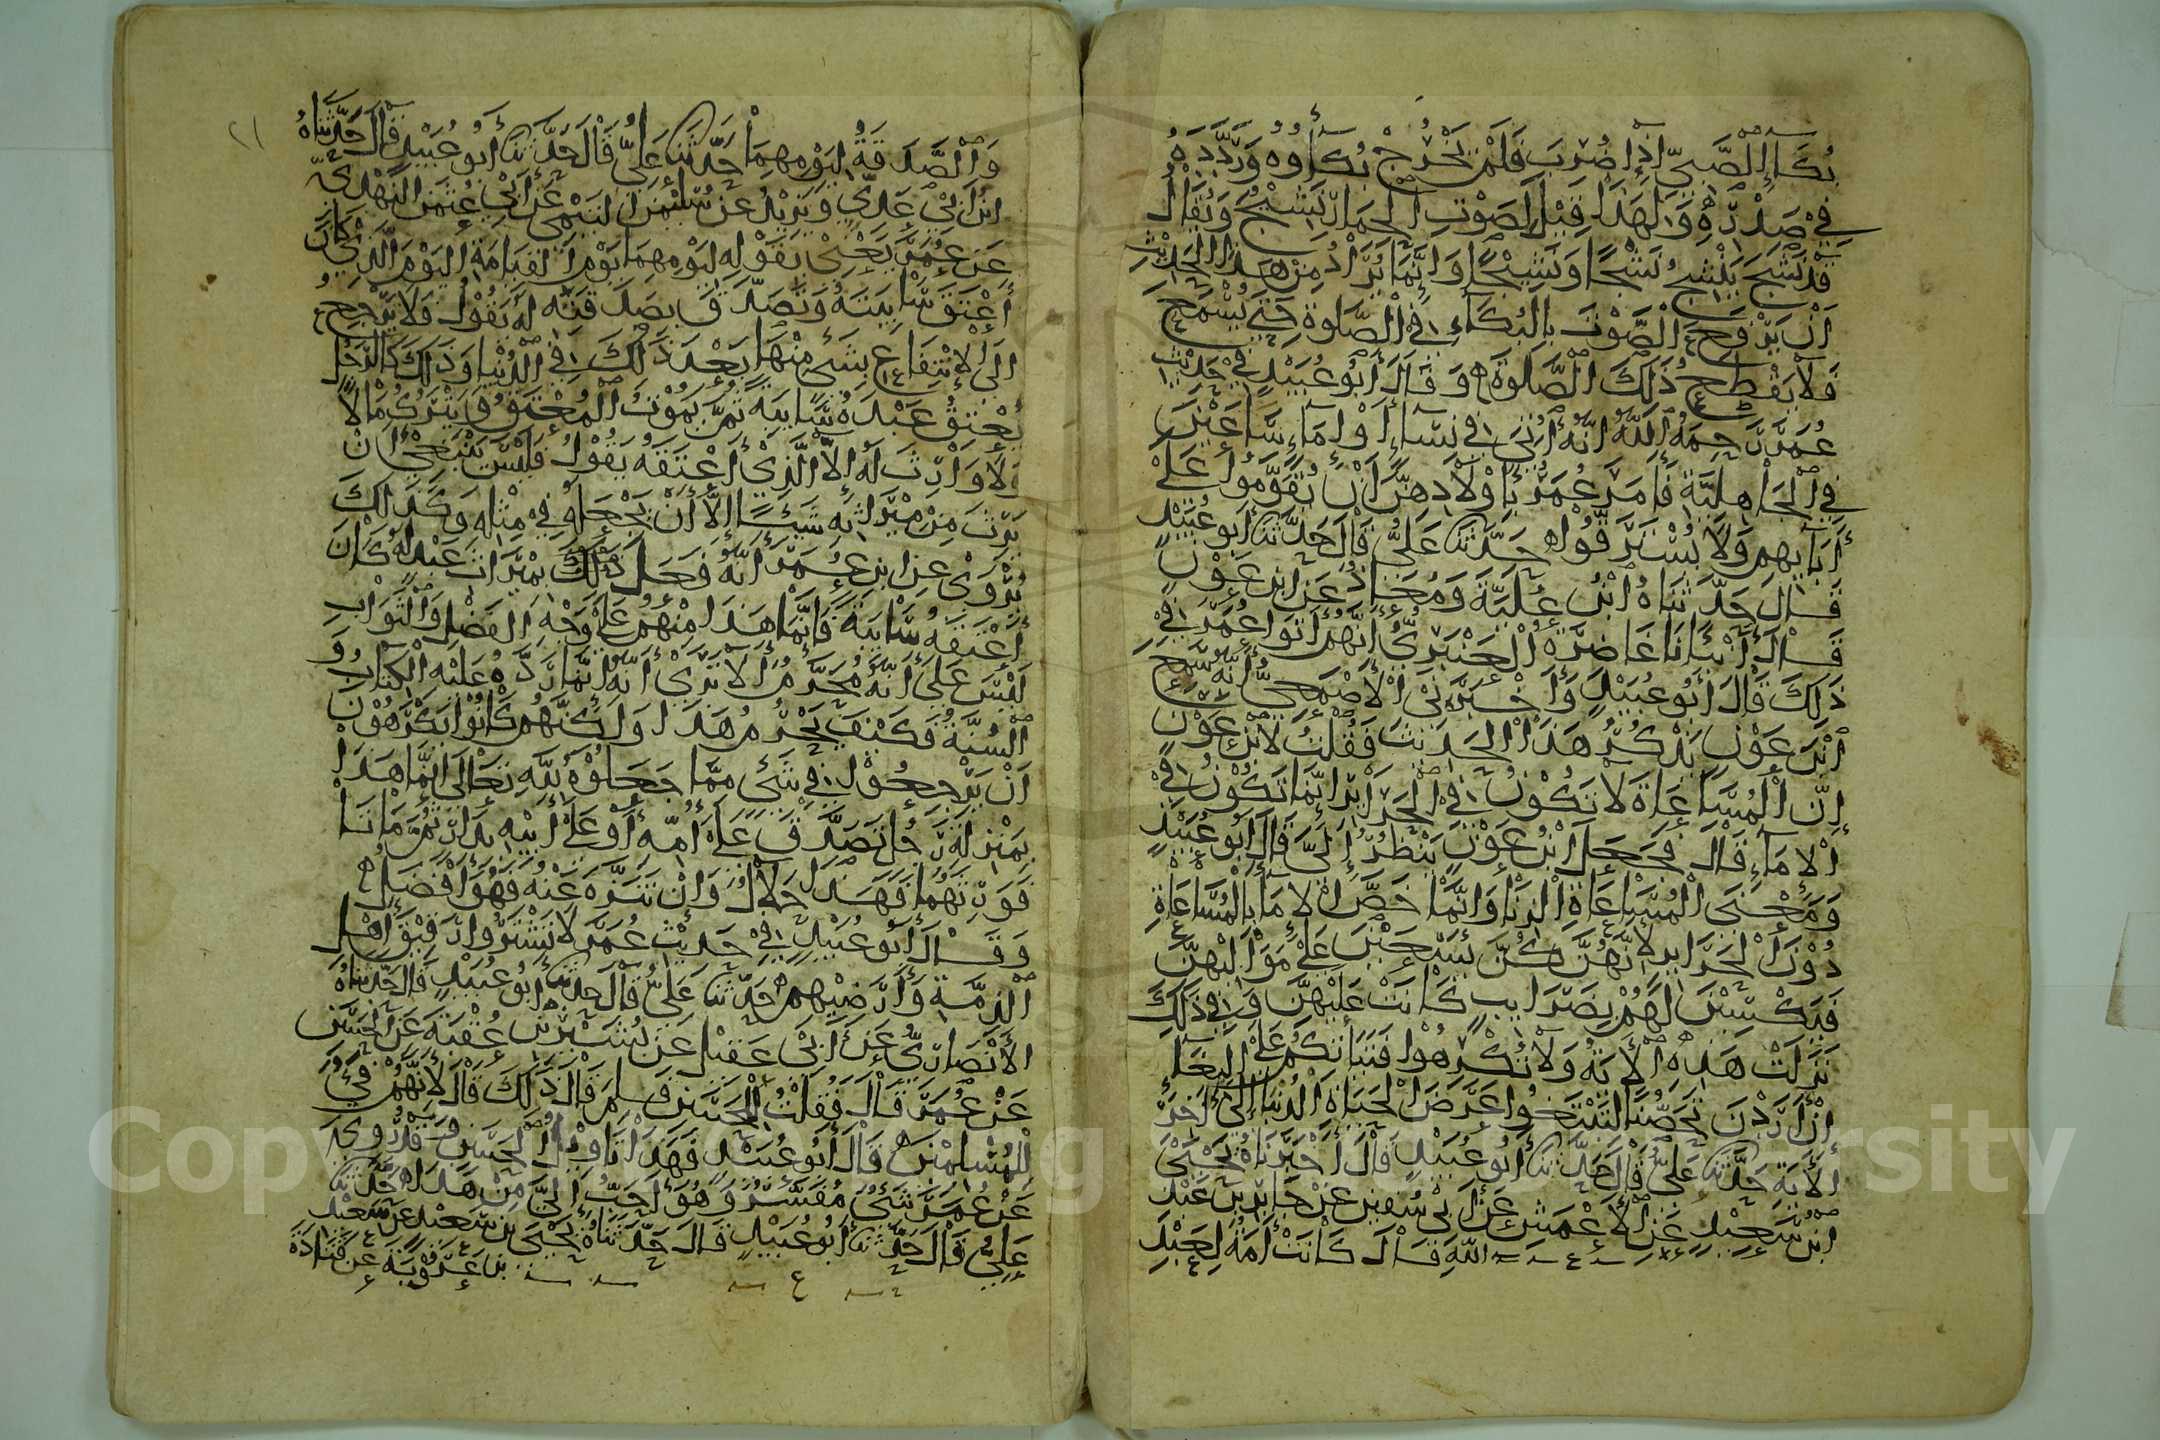 بُكَاءِ الصَّبِيِّ إِذَا ضُرِبَ فَلَمْ يَخْرُجْ بُكَاؤُهُ وَرَدَّدَهُ
فِي صَدْرِهِ وَلِهَذَا قِيلَ لِصَوْتِ الْحِمَارِ نَشِيجٌ وَيُقَالُ
قَدْ نَشَجَ يَنْشِجُ نَشْجًا وَنَشِيجًا وَإِنَّمَا يُرَادُ مِنْ هَذَا الْحَدِيثِ
أَنْ يَرْفَعَ الصَّوْتَ بِالْبُكَاءِ فِي الصَّلَوةِ حَتَّى يُسْمَعَ
وَلَا يَقْطَعُ ذَلِكَ الصَّلَوةَ وَقَالَ أَبُو عُبَيْدٍ فِي حَدِيثِ
عُمَرَ رَحِمَهُ اللَّهُ أَنَّهُ أُتِيَ فِي نِسَاءٍ أَوْ إِمَاءٍ سَاعَيْنَ
فِي الْجَاهِلِيَّةِ فَأَمَرَ عُمَرُ بِأَوْلَادِهِنَّ أَنْ يُقَوَّمُوا عَلَى
آبَايِهِمْ وَلَا يُسْتَرَقُّوا حَدَّثَنَا عَلِيٌّ قَالَ حَدَّثَنَا أَبُو عُبَيْدٍ
قَالَ حَدَّثَنَاهُ ابْنُ عُلَيَّةَ وَمُعَاذٌ عَنِ ابْنِ عَوْنٍ
قَالَ أَنْبَأَنَا غَاضِرَةُ الْعَنْبَرِيُّ أَنَّهُمْ أَتَوْا عُمَرَ فِي
ذَلِكَ قَالَ أَبُو عُبَيْدٍ وَأَخْبَرَنِي الْأَصْمَعِيُّ أَنَّهُ سَمِعَ
ابْنَ عَوْنٍ يَذْكُرُ هَذَا الْحَدِيثَ فَقُلْتُ لِابْنِ عَوْنٍ
إِنَّ الْمُسَاعَاةَ لَا تَكُونُ فِي الْحَرَايِرِ إِنَّمَا تَكُونُ فِي
الْإِمَاءِ قَالَ فَجَعَلَ ابْنُ عَوْنٍ يَنْظُرُ إِلَيَّ قَالَ أَبُو عُبَيْدٍ
وَمَعْنَى الْمُسَاعَاةِ الزِّنَا وَإِنَّمَا خَصَّ الْإِمَاءَ بِالْمُسَاعَاةِ
دُونَ الْحَرَايِرِ لِأَنَّهُنَّ كُنَّ يَسْعَيْنَ عَلَى مَوَالِيهِنَّ
فَيَكْسِبْنَ لَهُمْ بِضَرَايِبٍ كَانَتْ عَلَيْهِنَّ وَفِي ذَلِكَ
نَزَلَتْ هَذِهِ الْآيَةُ وَلَا تُكْرِهُوا فَتَيَاتِكُمْ عَلَى الْبِغَاءِ
إِنْ أَرَدْنَ تَحَصُّنًا لِتَبْتَغُوا عَرَضَ الْحَيَاةِ الدُّنْيَا إِلَى آخِرِ
الْآيَةِ حَدَّثَنَا عَلِيٌّ قَالَ حَدَّثَنَا أَبُو عُبَيْدٍ قَالَ أَخْبَرَنَاهُ يَحْيَى
ابْنُ سَعِيدٍ عَنِ الْأَعْمَشِ عَنْ أَبِي سُفْيَنَ عَنْ جَابِرِ بْنِ عَبْدِ
اللَّهِ قَالَ كَانَتْ أَمَةٌ لِعَبْدِ
٢١
وَالصَّدَقَةُ لِيَوْمِهِمَا حَدَّثَنَا عَلِيٌّ قَالَ حَدَّثَنَا أَبُو عُبَيْدٍ قَالَ حَدَّثَنَاهُ
ابْنُ أَبِي عَدِيٍّ وَيَزِيدُ عَنْ سُلَيْمَنَ التَّيْمِي عَنْ أَبِي عُثْمَنَ النَّهْدِيِّ
عَنْ عُمَرَ يَعْنِي بِقَوْلِهِ لِيَوْمِهِمَا يَوْمَ الْقِيَامَةِ الْيَوْمَ الَّذِي كَانَ
أَعْتَقَ سَايِبَتَهُ وَتَصَدَّقَ بِصَدَقَتِهِ لَهُ يَقُولُ فَلَا يَرْجِعُ
إِلَى الْانْتِفَاعِ بِشَيْءٍ مِنْهَا بَعْدَ ذَلِكَ فِي الدُّنْيَا وَذَلِكَ كَالرَّجُلِ
يُعْتِقُ عَبْدَهُ سَايِبَةً ثُمَّ يَمُوتُ الْمُعْتَقُ وَيَتْرُكُ مَالًا
وَلَا وَارِثَ لَهُ إِلَّا الَّذِي أَعْتَقَهُ يَقُولُ فَلَيْسَ يَنْبَغِي أَنْ
يَرِثَ مِنْ مِيرَاثِهِ شَيْئًا إِلَّا أَنْ يَجْعَلَهُ فِي مِثْلِهِ وَكَذَلِكَ
يُرْوَى عَنِ ابْنِ عُمَرَ أَنَّهُ فَعَلَ ذَلِكَ بِمِيرَاثِ عَبْدٍ لَهُ كَانَ
أَعْتَقَهُ سَايِبَةً فَإِنَّمَا هَذَا مِنْهُمْ عَلَى وَجْهِ الْفَضْلِ وَالثَّوَابِ
لَيْسَ عَلَى أَنَّهُ مُحَرَّمٌ أَلَا تَرَى أَنَّهُ إِنَّمَا رَدَّهُ عَلَيْهِ الْكِتَابُ وَ
السُّنَّةُ فَكَيْفَ يَحْرُمُ هَذَا وَلَكِنَّهُمْ كَانُوا يَكْرَهُونَ
أَنْ يَرْجِعُوا فِي شَيْءٍ مِمَّا جَعَلُوهُ لِلَّهِ تَعَالَى إِنَّمَا هَذَا
بِمَنْزِلَةِ رَجُلٍ تَصَدَّقَ عَلَى أُمِّهِ أَوْ عَلَى أَبِيهِ بِدَارٍ ثُمَّ مَاتَا
فَوَرِثَهُمَا فَهَذَا حَلَالٌ وَإِنْ تَنَزَّهَ عَنْهُ فَهُوَ أَفْضَلُ
وَقَالَ أَبُو عُبَيْدٍ فِي حَدِيثِ عُمَرَ لَا تَشْتَرُوا رَقِيقَ أَهْلِ
الذِّمَّةِ وَأَرَضِيهِمْ حَدَّثَنَا عَلِيٌّ قَالَ حَدَّثَنَا أَبُو عُبَيْدٍ قَالَ حَدَّثَنَاهُ
الْأَنْصَارِيُّ عَنْ أَبِي عَقِيلٍ عَنْ بَشِيرِ بْنِ عُقْبَةَ عَنِ الْحَسَنِ
عَنْ عُمَرَ قَالَ فَقُلْتُ لِلْحَسَنِ وَلِمَ قَالَ ذَلِكَ قَالَ لِأَنَّهُمْ فَيْءٌ
لِلْمُسْلِمِينَ قَالَ أَبُو عُبَيْدٍ فَهَذَا تَأْوِيلُ الْحَسَنِ وَقَدْ رُوِيَ
عَنْ عُمَرَ شَيْءٌ مُفَسَّرٌ وَهُوَ أَحَبُّ إِلَيَّ مِنْ هَذَا حَدَّثَنَا
عَلِيٌّ قَالَ حَدَّثَنَا أَبُو عُبَيْدٍ قَالَ حَدَّثَنَاهُ يَحْيَى بْنُ سَعِيدٍ عَنْ سَعِيدِ
بْنِ عَرُوبَةَ عَنْ قَتَادَةَ